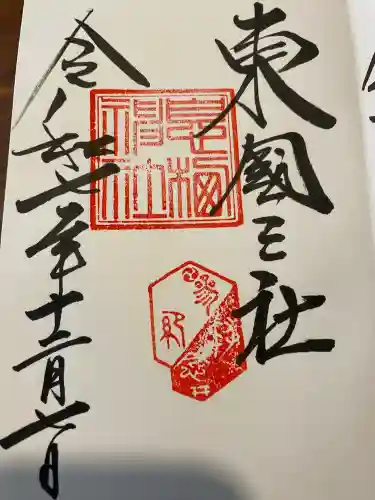 東國三社
息栖
神社
令和七年十二月七日